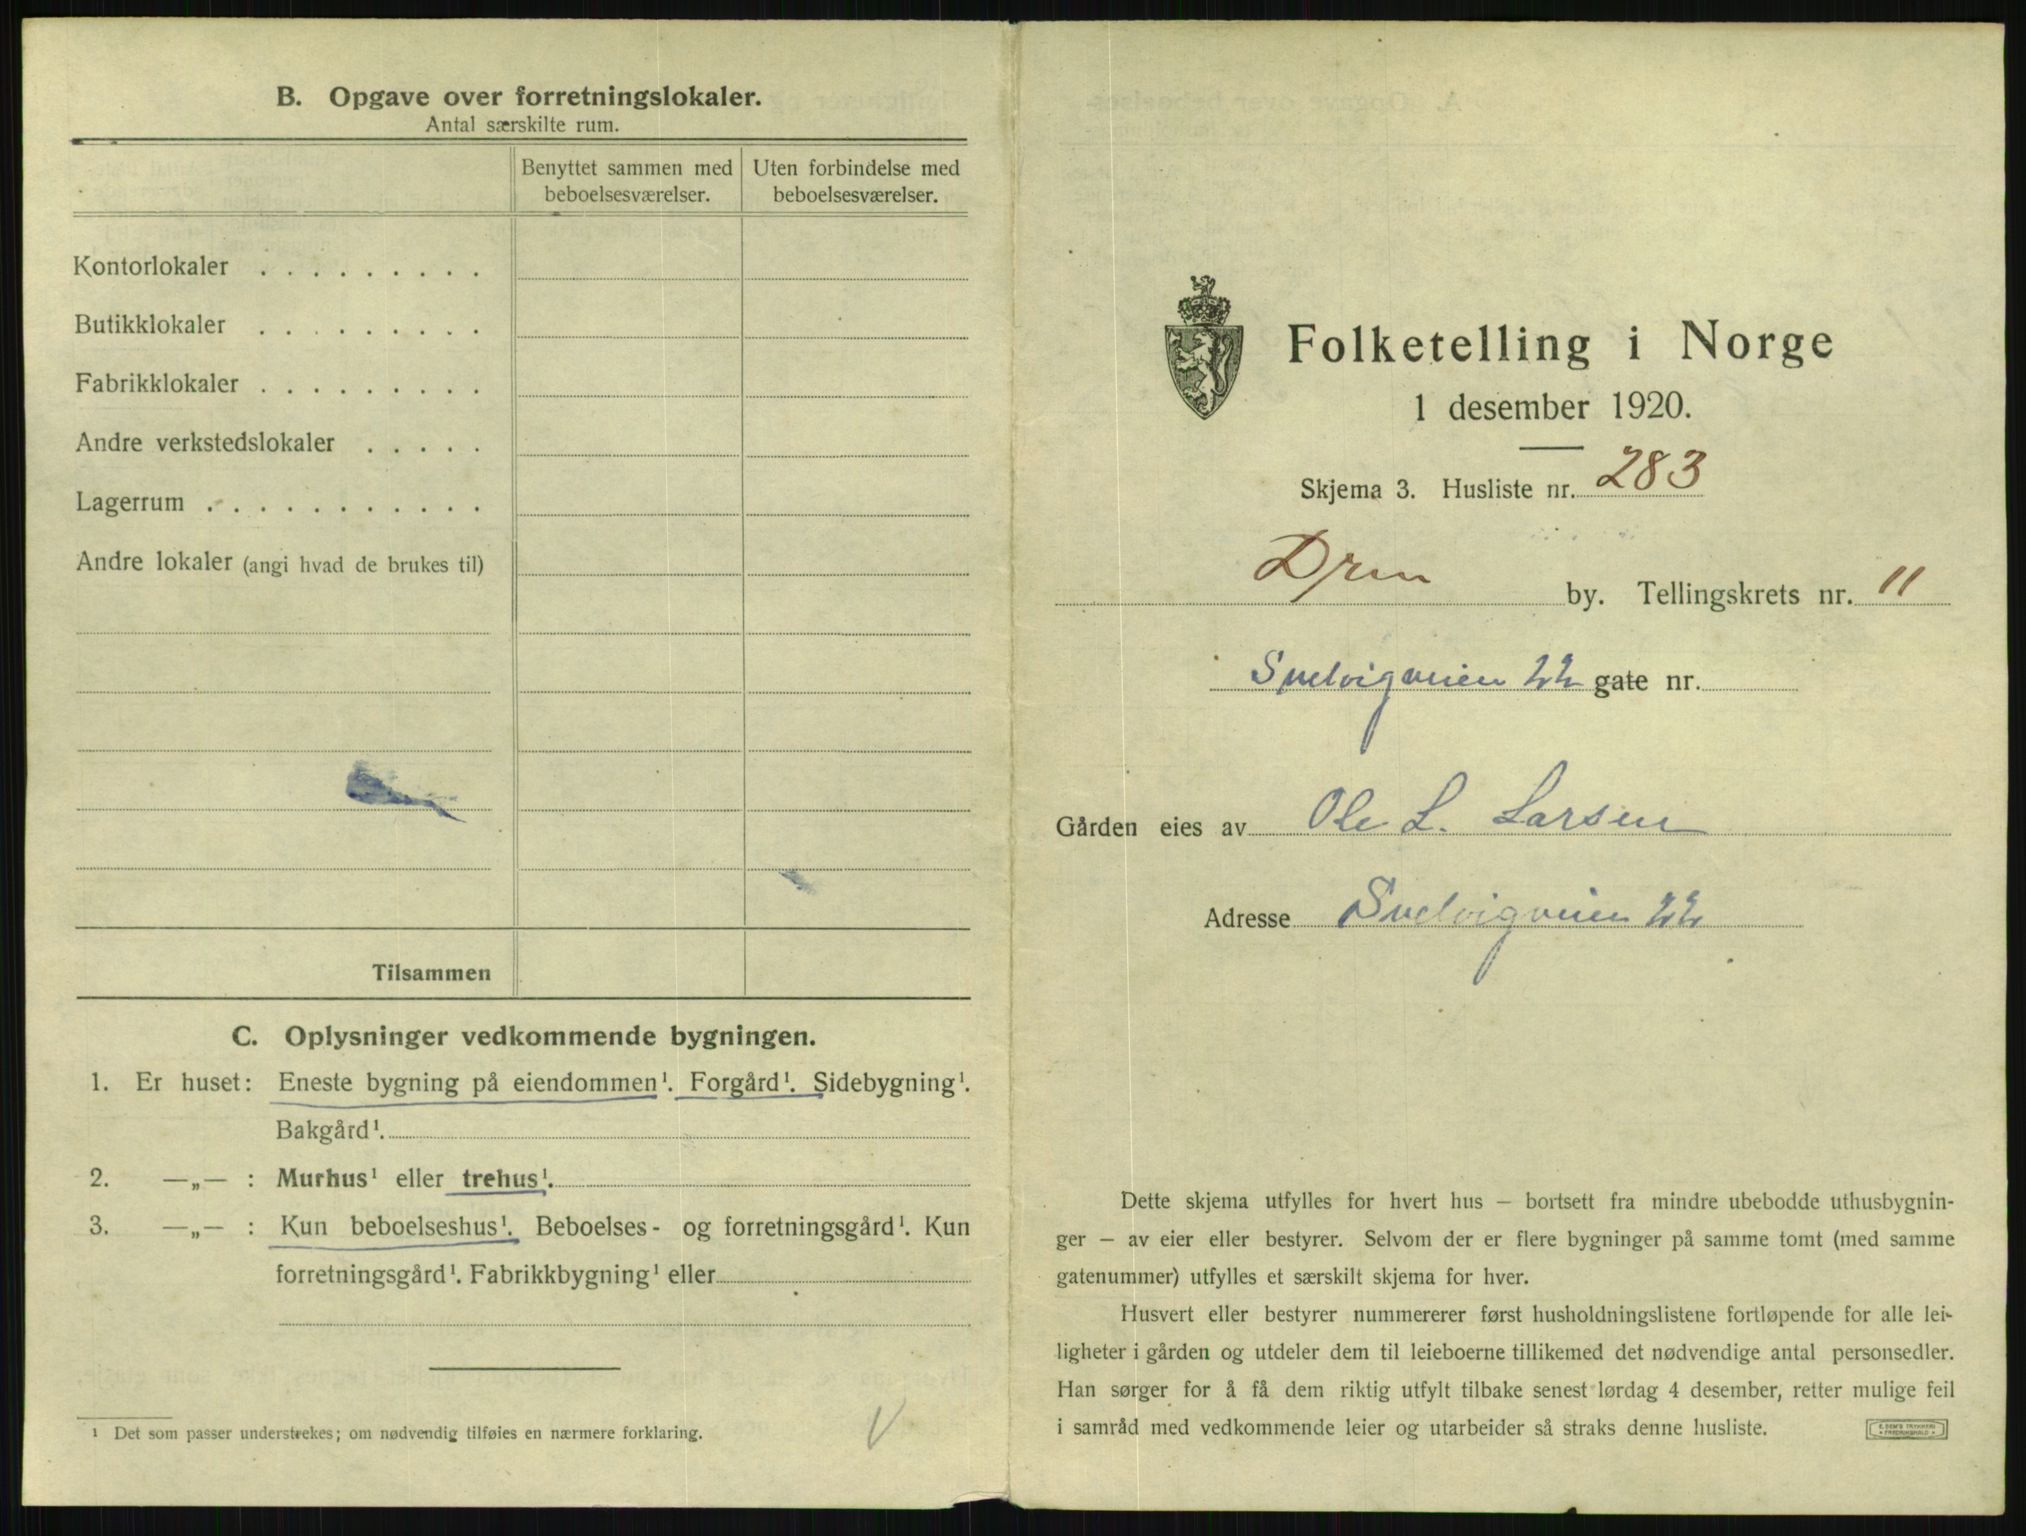 B. Opgave over forretningslokaler.
Antal særskilte rum.
Benyttet sammen med beboelsesværelser.
Uten forbindelse med beboelsesværelser.
Kontorlokaler . . . . . . . . .
Butikklokaler . . . . . . . . .
Fabrikklokaler . . . . . . . . .
Andre verkstedslokaler . . . . .
Lagerrum . . . . . . . . . . .
Andre lokaler (angi hvad de brukes til)
Tilsammen
C. Oplysninger vedkommende bygningen.
1. Er huset: Eneste bygning på eiendommen¹. Forgård¹. Sidebygning¹.
Bakgård¹.
2. —„— : Murhus¹ eller trehus¹.
3. —„— : Kun beboelseshus¹. Beboelses- og forretningsgård¹. Kun
forretningsgård¹. Fabrikkbygning¹ eller
¹ Det som passer understrekes; om nødvendig tilføies en nærmere forklaring.
Folketelling i Norge
1 desember 1920.
Skjema 3. Husliste nr. 283
Drm by. Tellingskrets nr. 11
Svelvigveien 22 gate nr.
Gården eies av Ole L. Larsen
Adresse Svelvigveien 22
Dette skjema utfylles for hvert hus — bortsett fra mindre ubebodde uthusbygnin-
ger — av eier eller bestyrer. Selvom der er flere bygninger på samme tomt (med samme
gatenummer) utfylles et særskilt skjema for hver.
Husvert eller bestyrer nummererer først husholdningslistene fortløpende for alle lei-
ligheter i gården og utdeler dem til leieboerne tillikemed det nødvendige antal personsedler.
Han sørger for å få dem riktig utfylt tilbake senest lørdag 4 desember, retter mulige feil
i samråd med vedkommende leier og utarbeider så straks denne husliste.